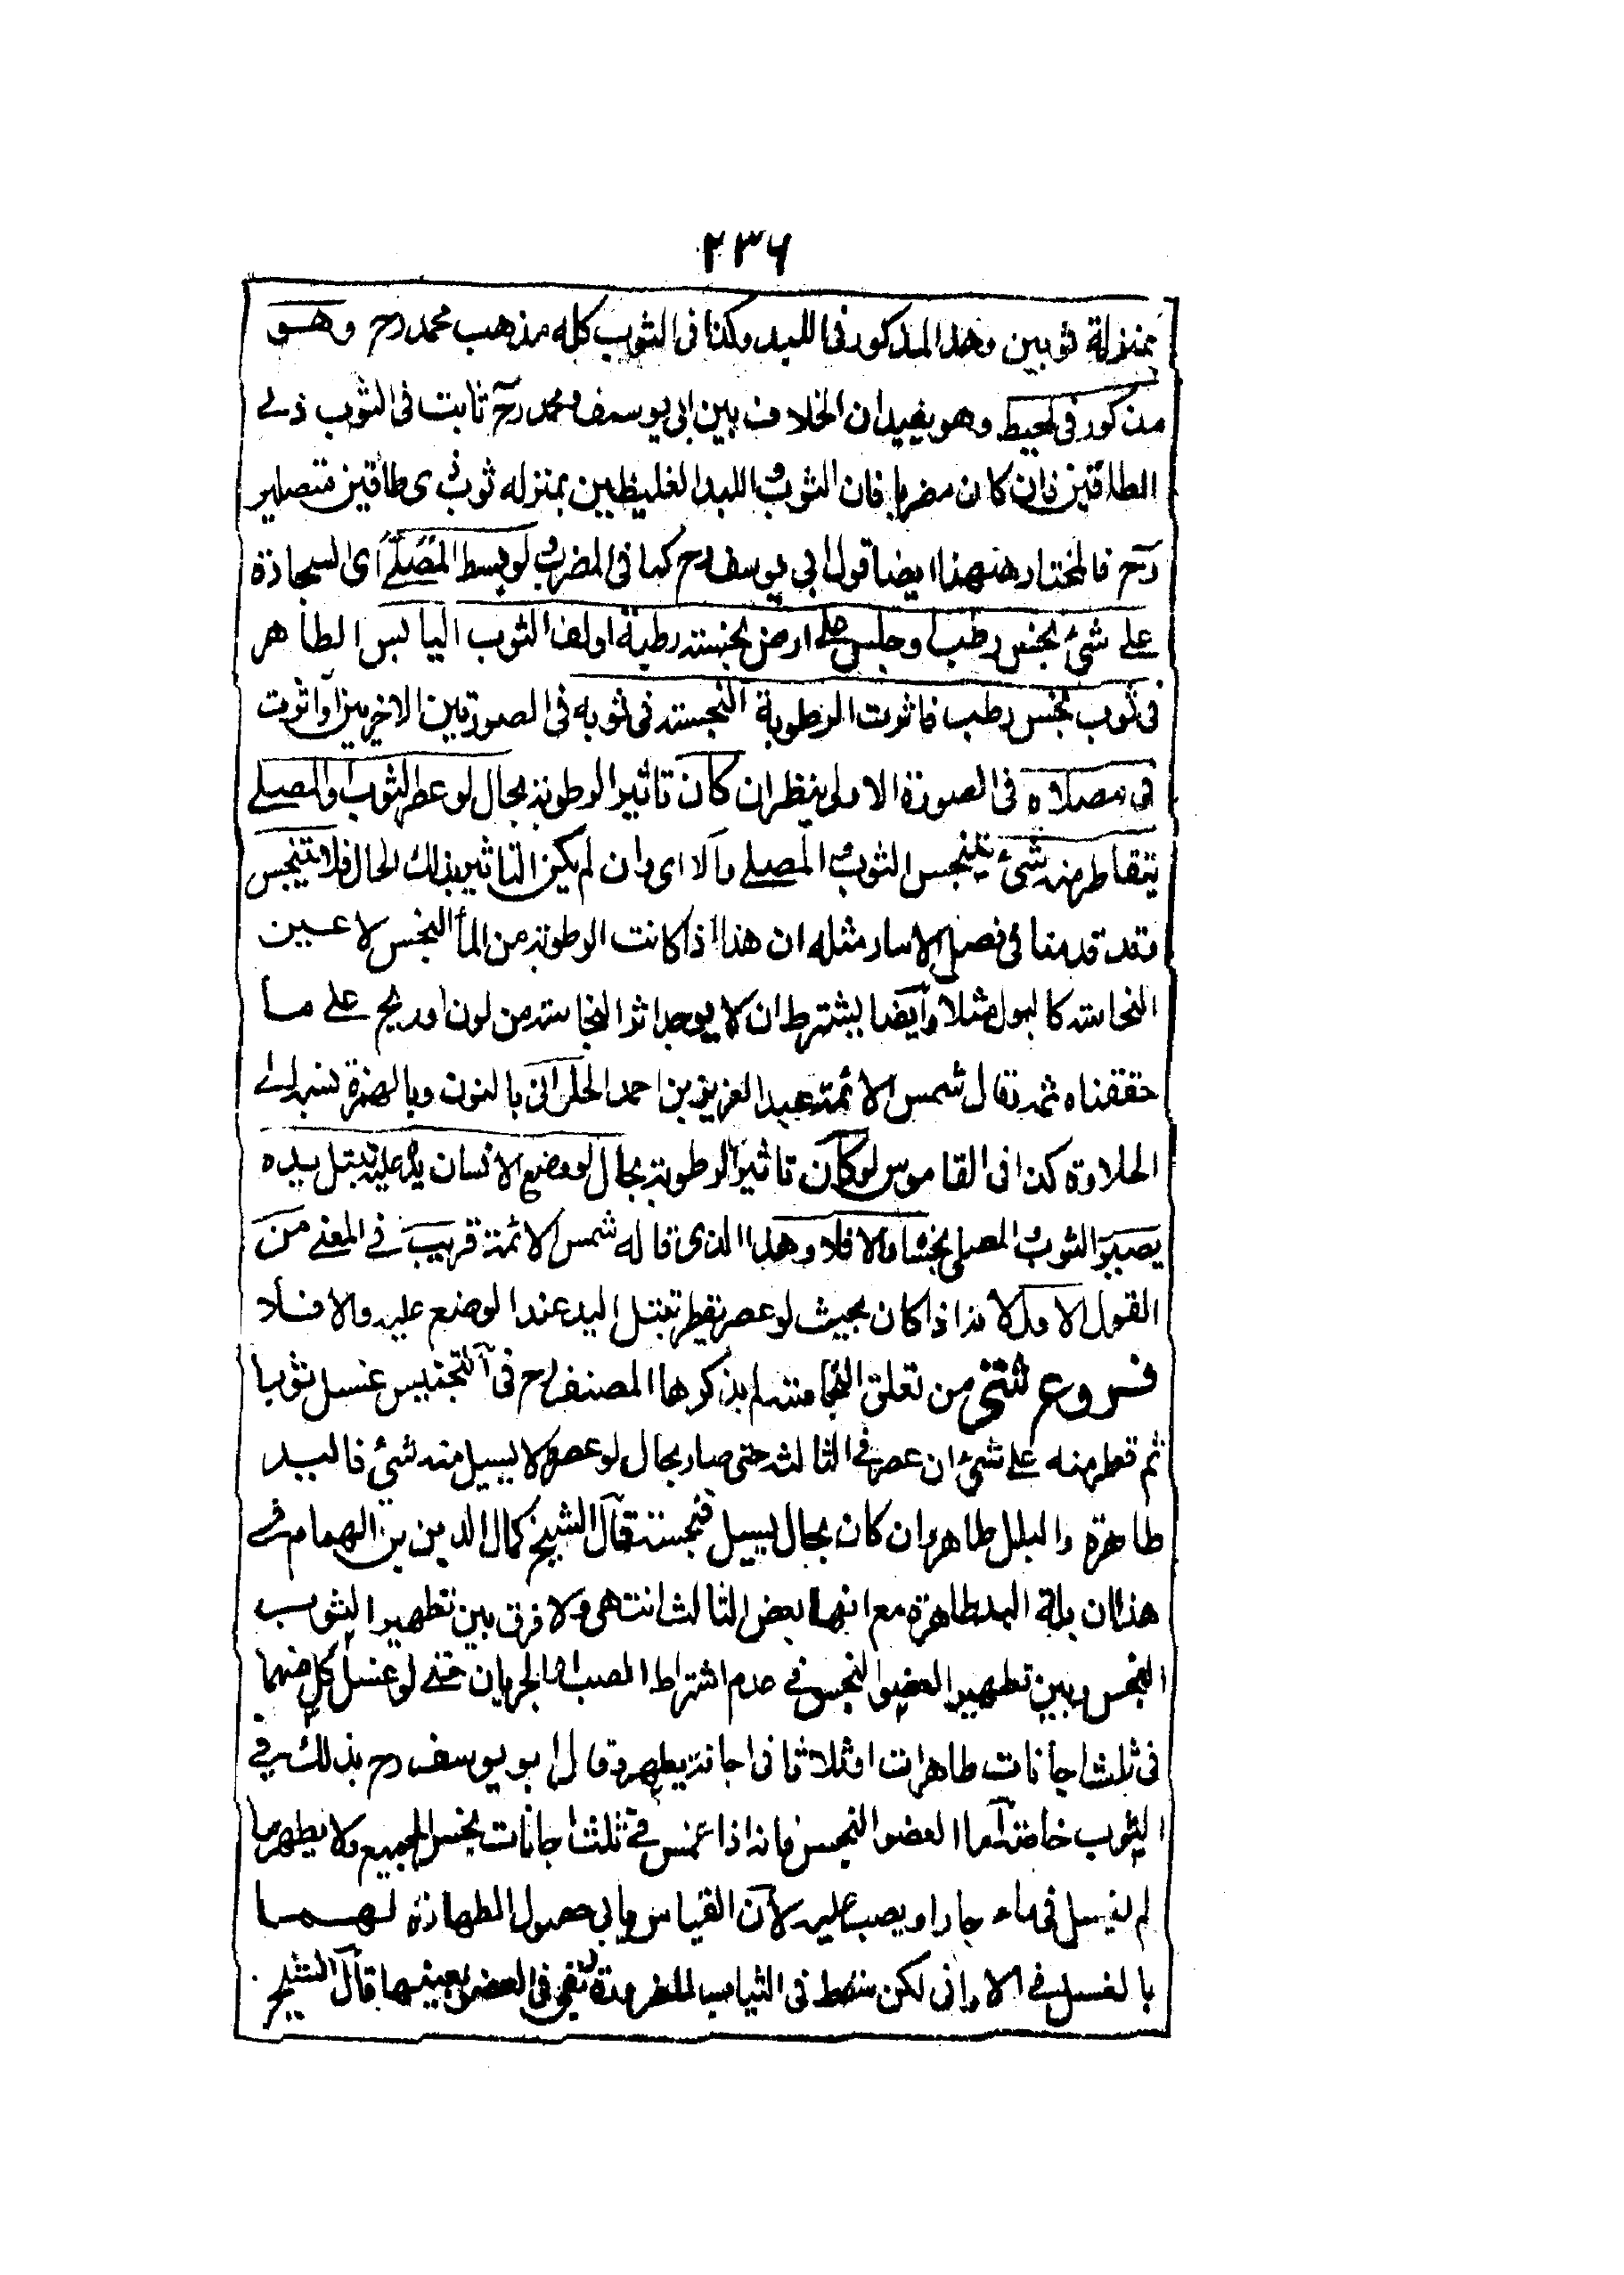 ٢٣٦
بمنزلة ثوبين وهذا المذكور في اللبد وكذا في الثوب كله مذهب محمد رح وهو
مذكور في المحيط وهو يفيد ان الخلاف بين ابي يوسف ومحمد رح ثابت في الثوب ذي
الطاقين وان كان مضربا فان الثوب واللبد الغليظين بمنزله ثوب ذي طاقين متصلين
رح فالمختار هنهنا ايضا قول ابي يوسف رح كما في المضرب ولو بسط المصلے اي السجادة
علے شئ نجس رطب او جلس علے ارض نجسته رطبة او لف الثوب اليابس الطاهر
في ثوب نجس رطب فاثرت الرطوبة النجسته في ثوبه في الصورتين الاخرين او اثرت
في مصلاه في الصورة الاولى ينظر ان كان تاثير الرطوبة بحال لو عصر الثوب والمصلے
يتقاطر منه شئ يتنجس الثوب المصلے والا اي وان لم يكن التاثير بذلك الحال فلا يتنجس
وقد قدمنا في فصل الاسار مثله ان هذا اذا كانت الرطوبة من الماء النجس لا عين
النجاسة كالبول مثلا وايضا يشترط ان لا يوجد اثر النجاسة من لون او ريح علے ما
حققناه ثمه وقال شمس الائمة عبد العزيز بن احمد الحلواني بالنون وبالهمزة نسبه الے
الحلاوة كذا في القاموس لو كان تاثير الرطوبة بحال لو وضع الانسان يده عليه تبتل يده
يصير الثوب المصلى نجسا والا فلا وهذا الذي قاله شمس الائمة قريب في المعنے من
القول الاول لانه اذا كان بحيث لو عصر تقطر تبتل اليد عند الوضع عليه والا فلا
فروع شتى من تعلق النجاسة لم يذكرها المصنف رح في التجنيس غسل ثوبا
ثم قطر منه علے شئ ان عصر في الثالثه حتى صار بحال لو عصر لا يسيل منه شئ فاليد
طاهرة والبلل طاهر وان كان بحال يسيل فنجسته قال الشيخ كمال الدين بن الهمام في
هذا ان بلة اليد طاهرة مع انها بعض الثالث انتهى ولا فرق بين تطهير الثوب
النجس وبين تطهير العضو النجس في عدم اشتراط الصب او الجريان حتى لو غسل كل منهما
في ثلث اجانات طاهرات او ثلاثا في اجانة يطهر وقال ابو يوسف رح بذلك في
الثوب خاصة اما العضو النجس فانه اذا غمس في ثلث اجانات ينجس الجميع ولا يطهر ما
لم يغسل في ماء جار او يصب عليه لان القياس يابى حصول الطهارة لهما
بالغسل في الاواني لكن سقط في الثياب للضرورة بقي في العضو بعينها قال الشيخ